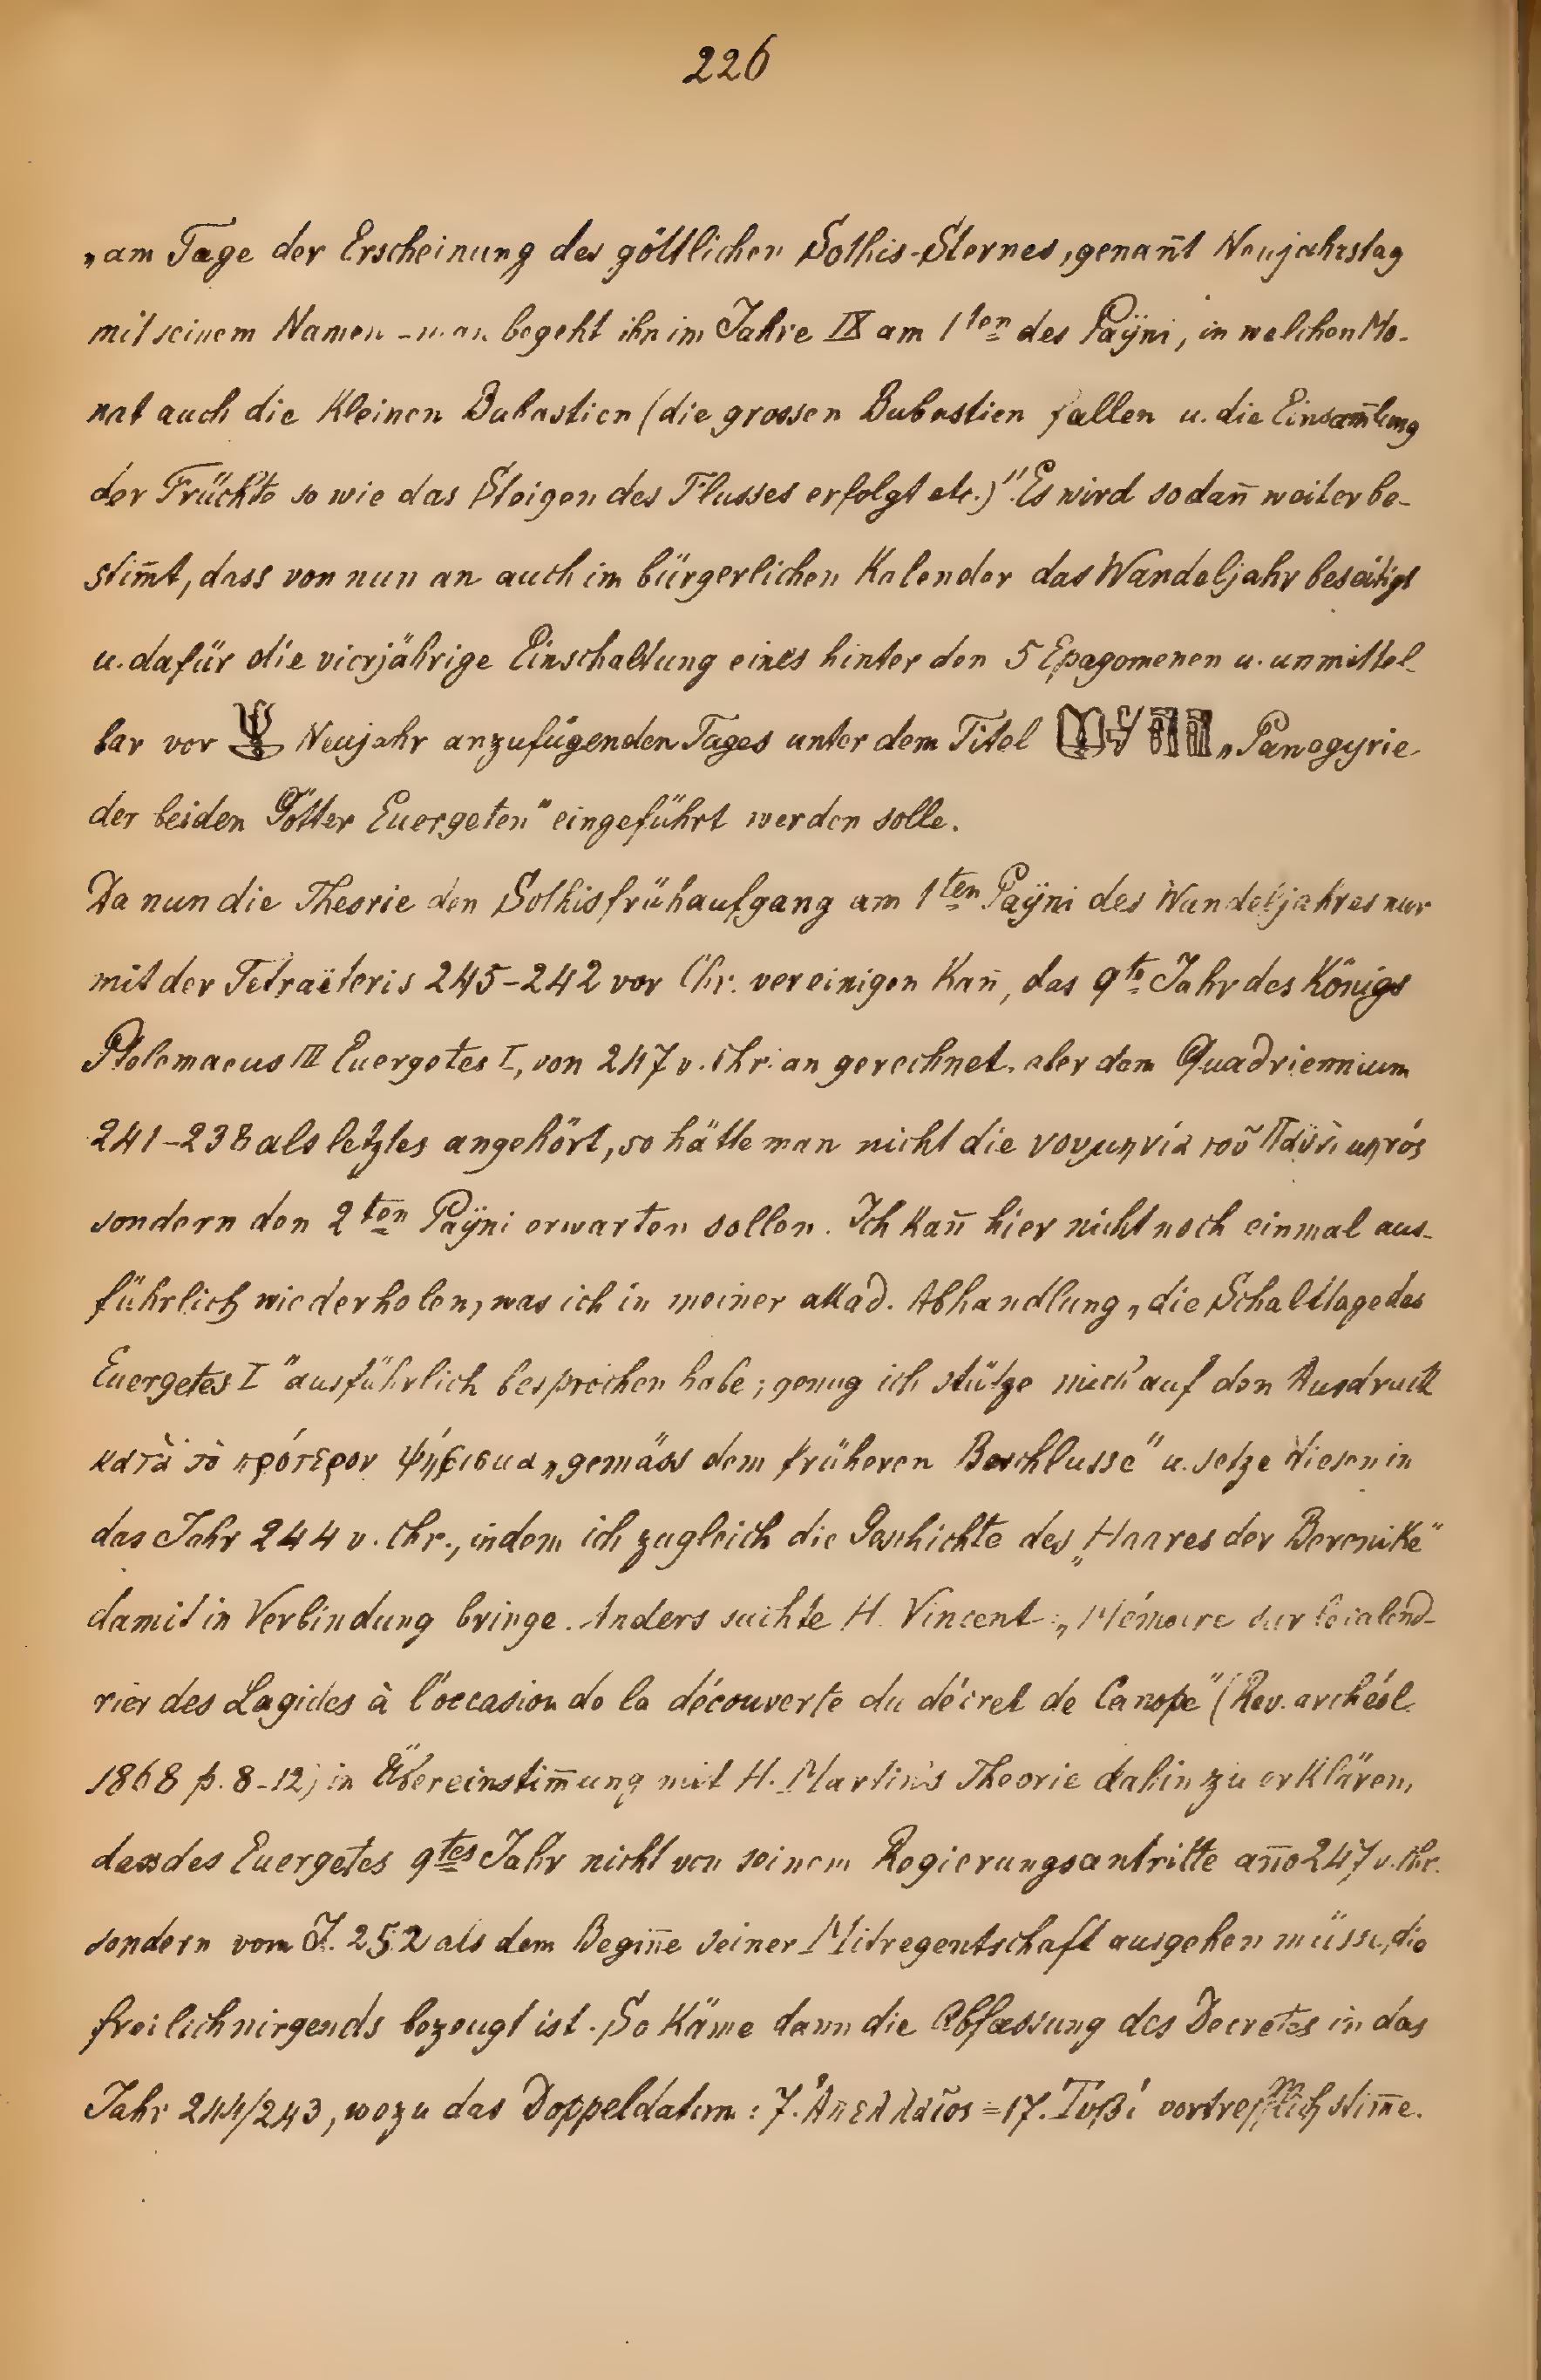 226
„am Tage der Erscheinung des göttlichen Sothis-Sternes, genan̄t Neujahrstag
mit seinem Namen - man begeht ihn im Jahre IX am 1ten des Paÿni, in welchen Mo-
nat auch die Kleinen Bubastien (die grossen Bubastien fallen u. die Einsam̄lung
der Früchte so wie das Steigen des Flusses erfolgt etc.)“. Es wird sodan̄ weiter be-
stim̄t, dass von nun an auch im bürgerlichen Kalender das Wandeljahr beseitigt
u. dafür die vierjährige Einschaltung eines hinter den 5 Epagomenen u. unmittel-
bar vor Neujahr anzufügenden Tages unter dem Titel „Panegyrie
der beiden Götter Euergeten“ eingeführt werden solle.
Da nun die Theorie den Sothisfrühaufgang am 1ten Paÿni des Wandeljahres nur
mit der Tetraëteris 245-242 vor Chr. vereinigen kan̄, das 9te Jahr des Königs
Ptolemaeus III Euergetes I, von 247 v. Chr. an gerechnet, aber dem Quadriennium
241-238 als letztes angehört, so hätte man nicht die νουμηνία τοῦ Παϋνὶ μηνός
sondern den 2ten Paÿni erwarten sollen. Ich kan̄ hier nicht noch einmal aus-
führlich wiederholen, was ich in meiner akad. Abhandlung „die Schalttage des
Euergetes I“ ausführlich besprochen habe; genug ich stütze mich auf den Ausdruck
κατὰ τὸ πρότερον ψήφισμα „gemäss dem früheren Beschlusse“ u. setze diesen in
das Jahr 244 v. Chr., indem ich zugleich die Geschichte des „Haares der Berenike“
damit in Verbindung bringe. Anders suchte H. Vincent: „Mémoire sur le calend-
rier des Lagides à l'occasion de la découverte du décret de Canope“ (Rev. archéol.
1868 p. 8-12) in Übereinstim̄ung mit H. Martin's Theorie dahin zu erklären,
dass des Euergetes 9tes Jahr nicht von seinem Regierungsantritte an̄o 247 v. Chr.
sondern vom J. 252 als dem Begin̄e seiner Mitregentschaft ausgehen müsse, die
freilich nirgends bezeugt ist. So käme dann die Abfassung des Decretes in das
Jahr 244/243, wozu das Doppeldatum: 7. Ἀπελλαῖος = 17. Τυβί vortrefflich stim̄e.